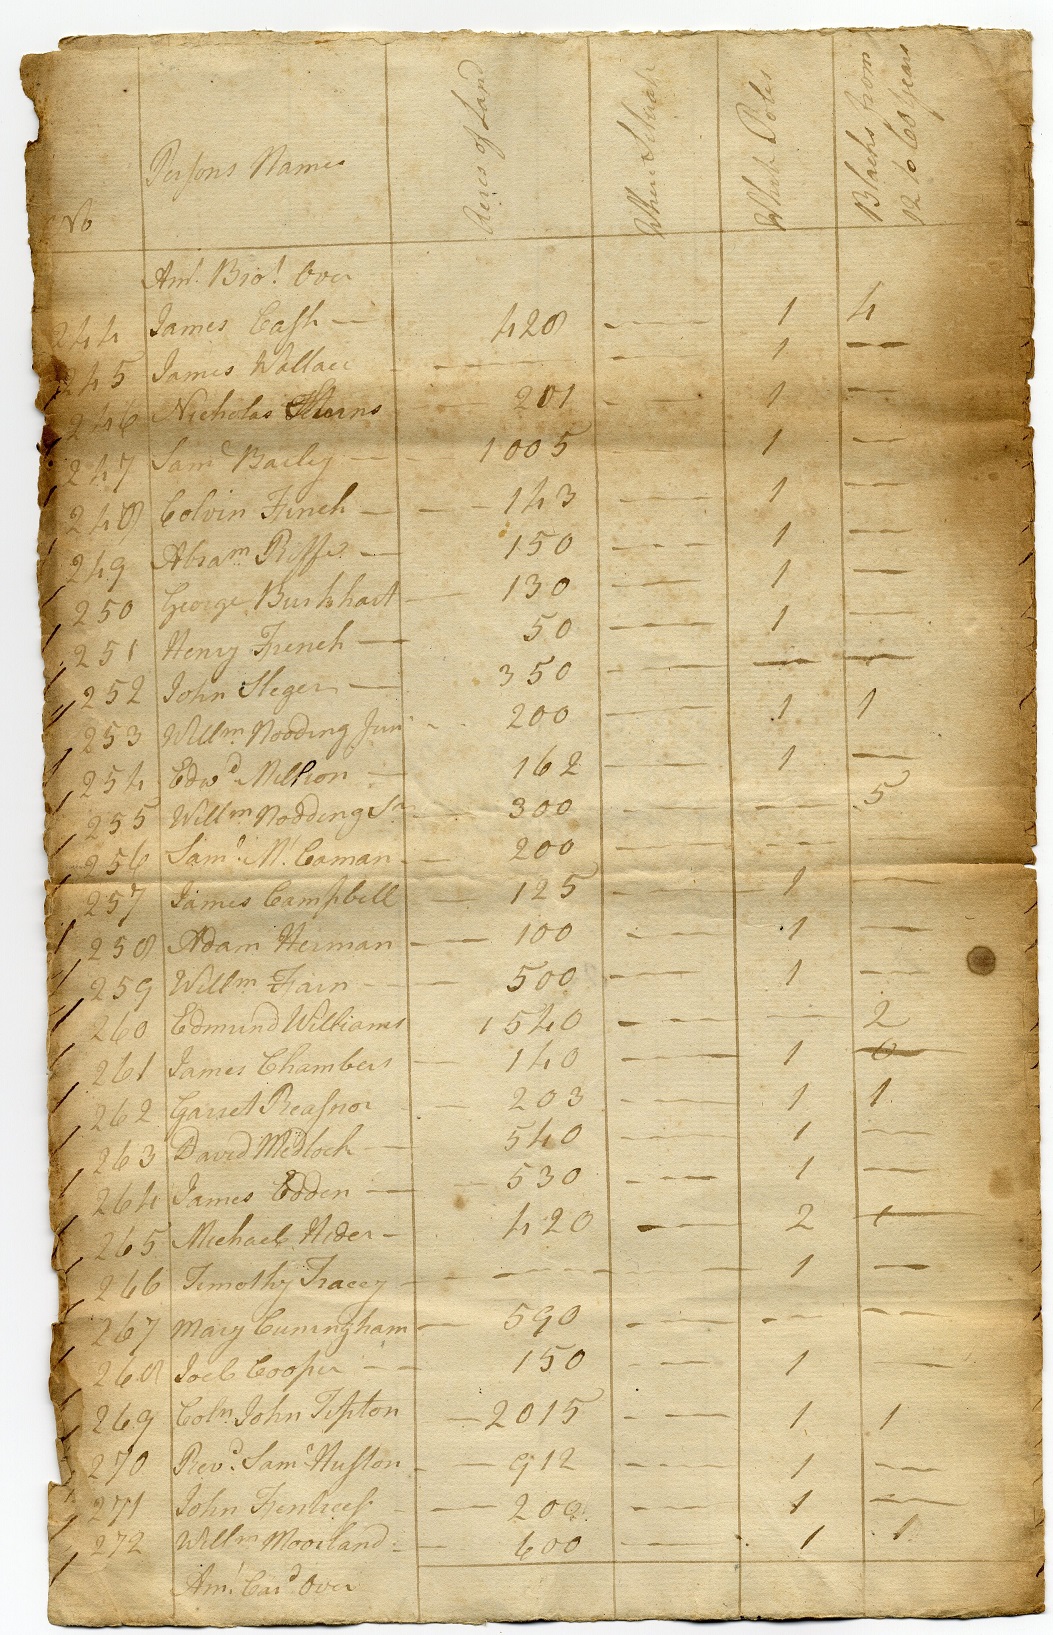 No Persons Names Acres of Land Where Situate White Poles Blacks from 12 to 60 years
Amt. Brot. Over
244 James Cash — 428 - - - 1 4
245 James Wallace - - - - - - 1 —
246 Nicholas — 201 - - - 1 —
247 Saml Bailey — 1005 - - - 1 —
248 Colvin Finch — 143 - - - 1 —
249 Abram. Riffe — 150 - - - 1 —
250 George Burkhart — 130 - - - 1 —
251 Henry French — 50 - - - 1 —
252 John Sleger — 350 - - - — —
253 Willm. Nodding Jun 200 - - - 1 1
254 Edwd. Million — 162 - - - 1 —
255 Willm Nodding Sr — 300 - - - — 5
256 Saml. Mc.Caman — 200 - - - — —
257 James Campbell — 125 - - - 1 —
258 Adam Herman — 100 - - - 1 —
259 Willm Fain — 500 - - - 1 —
260 Edmund Williams 1540 - - - — 2
261 James Chambers — 140 - - - 1 0
262 Garret Reasnor — 203 - - - 1 1
263 David Medlock — 540 - - - 1 —
264 James Edden — 530 - - - 1 —
265 Michael Hider — 420 - - - 2 1
266 Timothy Tracey — - - - - - - 1 —
267 Mary Cuningham — 590 - - - — —
268 Joel Cooper — 150 - - - 1 —
269 Coln. John Tipton — 2015 - - - 1 1
270 Revd. Saml Huston — 912 - - - 1 —
271 John Fentress — 200 - - - 1 —
272 Willm Mooreland — 600 - - - 1 1
Amt. Card Over